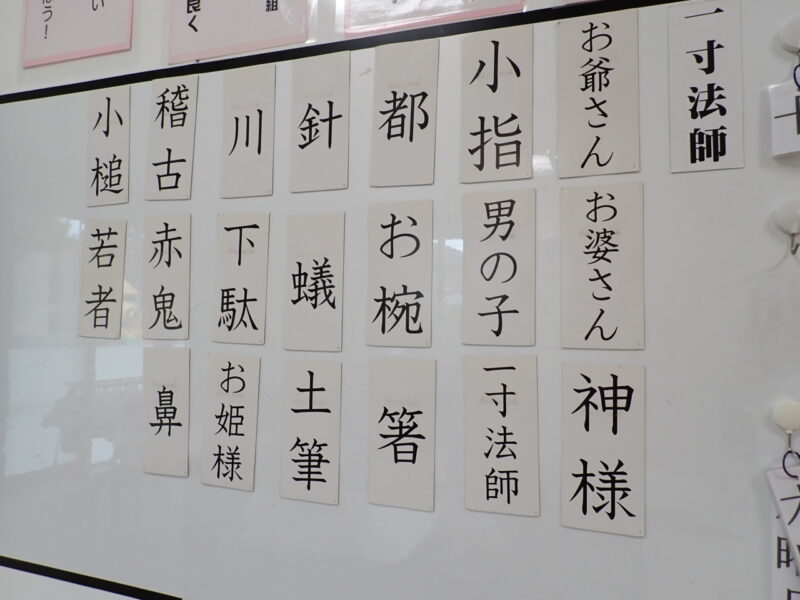 一寸法師
お爺さん
お婆さん
神様
小指
男の子
一寸法師
都
お椀
箸
針
蟻
土筆
川
下駄
お姫様
稽古
赤鬼
鼻
小槌
若者
組
良く
い
う!